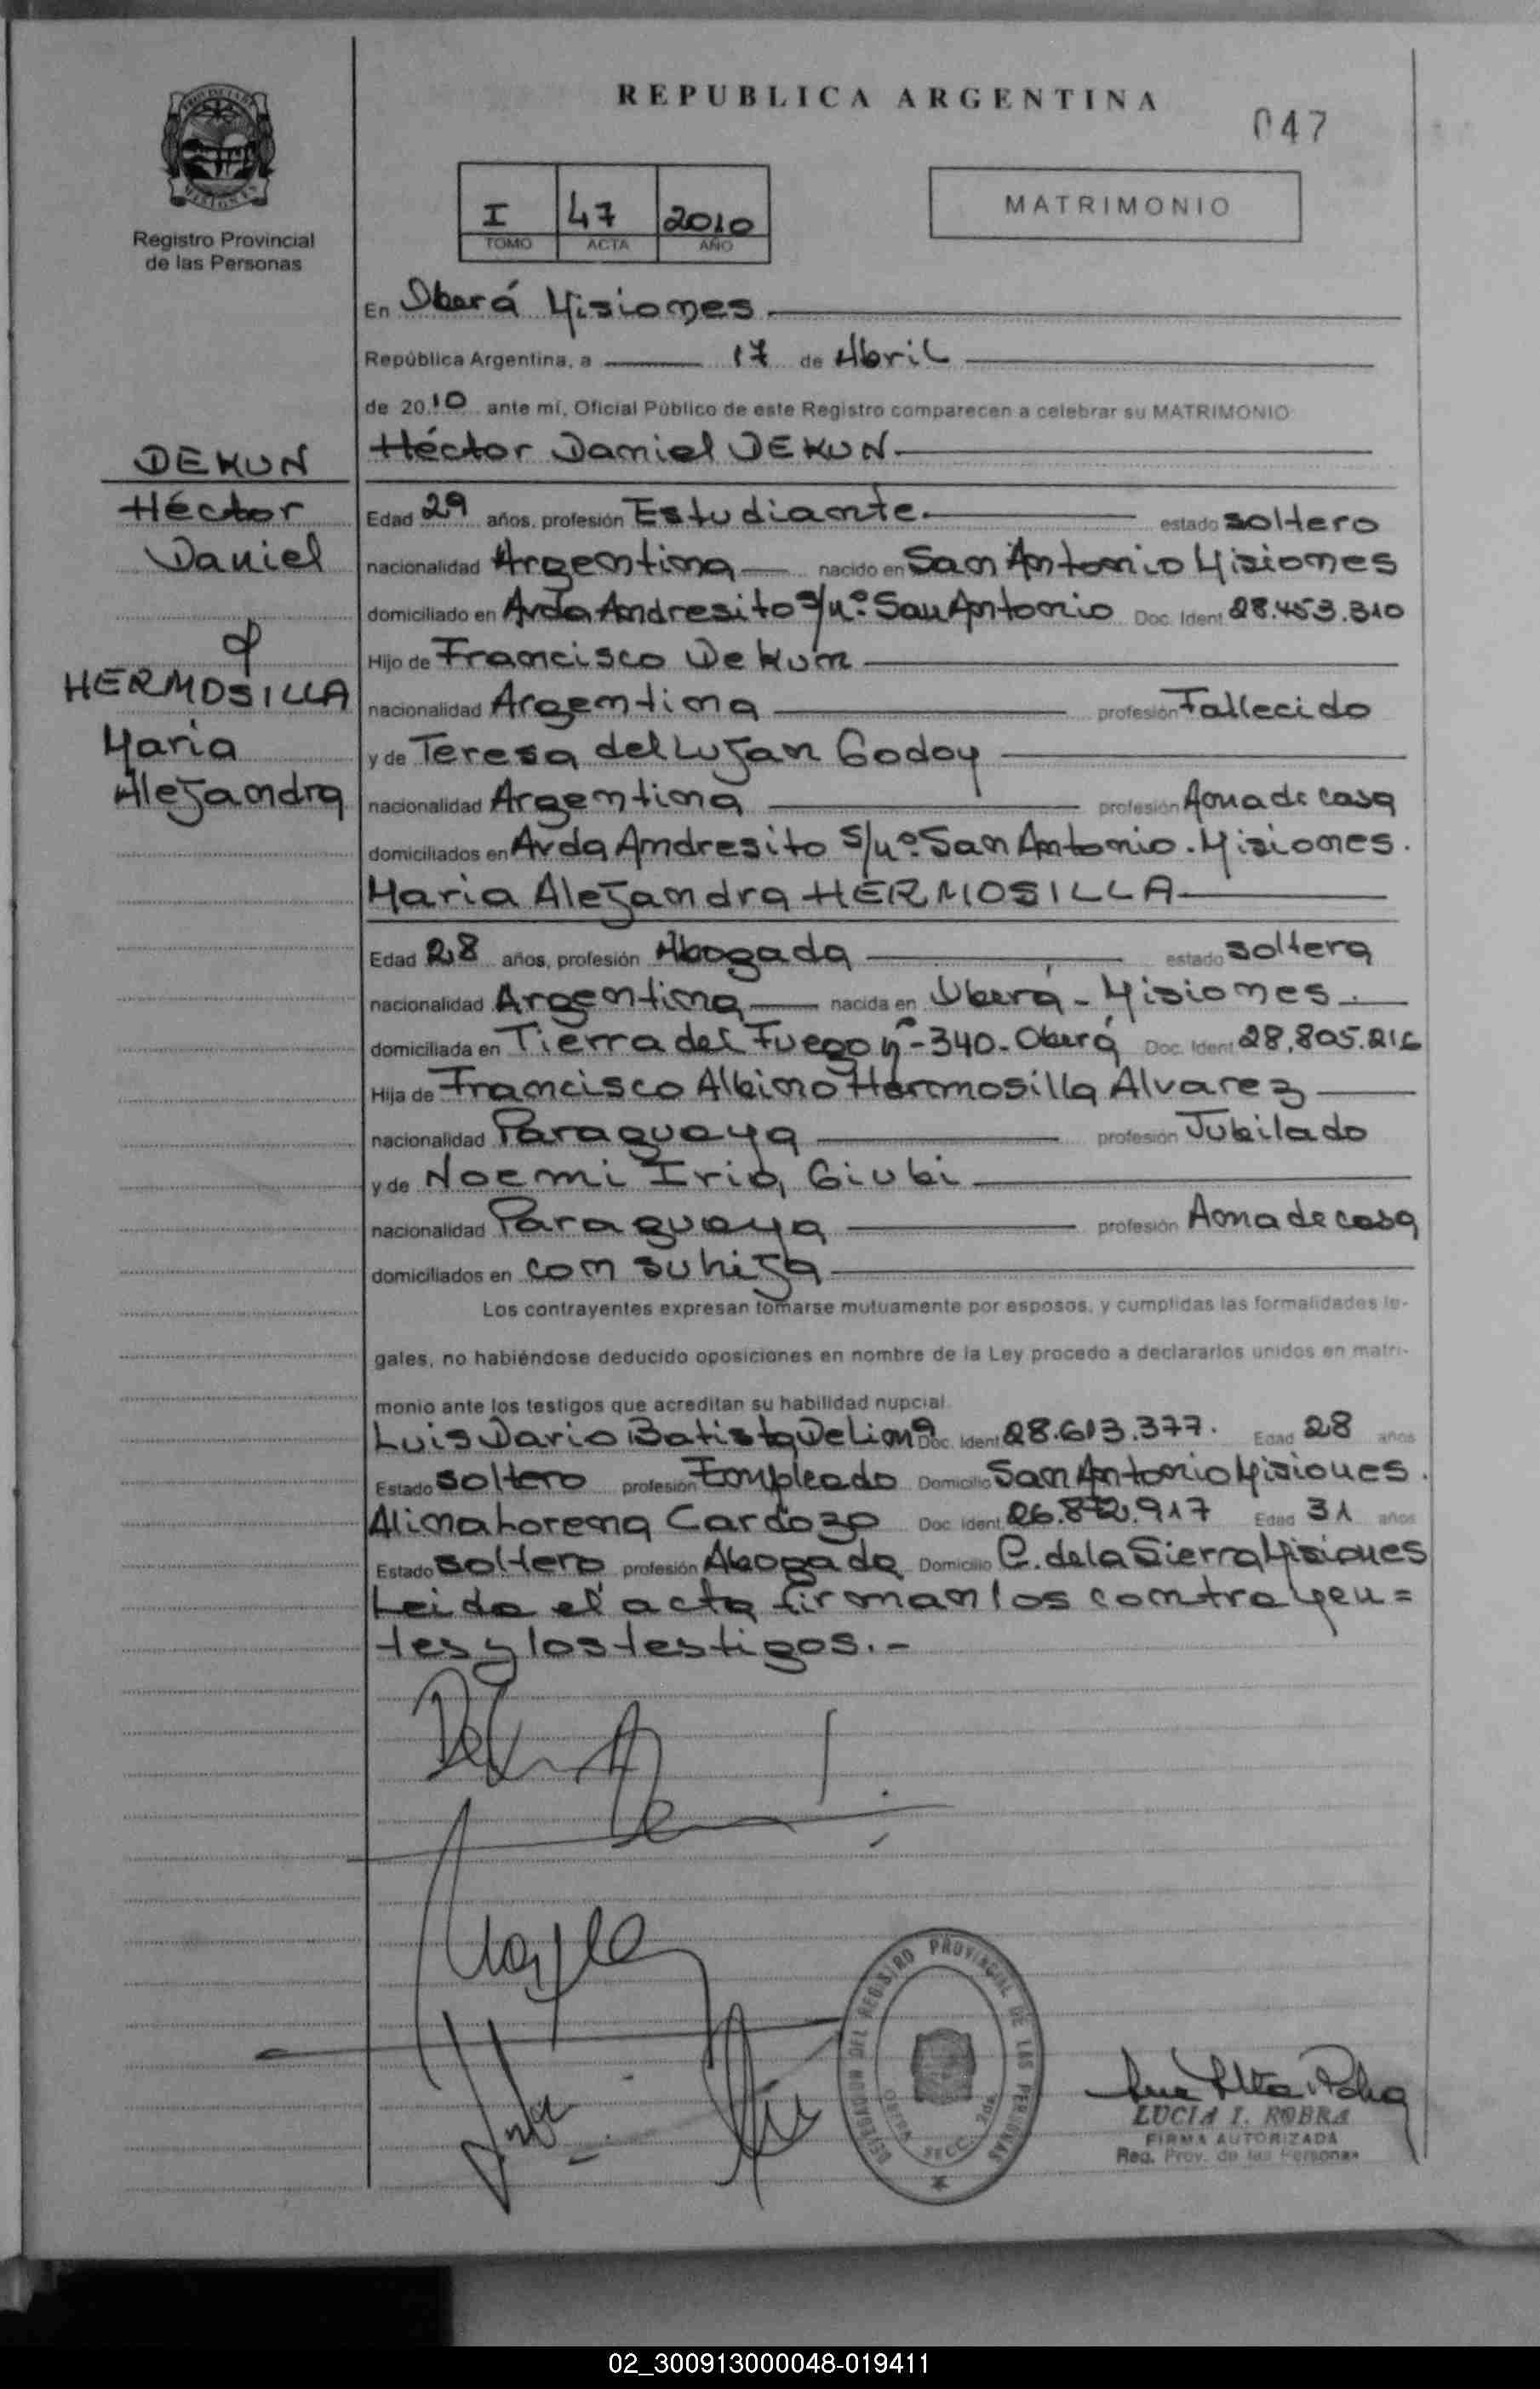 REPUBLICA ARGENTINA
047
Registro Provincial
de las Personas
I 47 2010
TOMO ACTA AÑO
MATRIMONIO
En Oberá Misiones
República Argentina, a 17 de Abril
de 2010 ante mí, Oficial Público de este Registro comparecen a celebrar su MATRIMONIO
DEKUN
Héctor
Daniel
y
HERMOSILLA
Maria
Alejandra
Héctor Daniel DEKUN
Edad 29 años, profesión Estudiante. estado soltero
nacionalidad Argentina nacido en San Antonio Misiones
domiciliado en Avda Andresito s/nº San Antonio Doc. Ident. 28.453.310
Hijo de Francisco Dekun
nacionalidad Argentina profesión Fallecido
y de Teresa del Lujan Godoy
nacionalidad Argentina profesión Ama de casa
domiciliados en Avda Andresito s/nº San Antonio. Misiones.
Maria Alejandra HERMOSILLA
Edad 28 años, profesión Abogada estado soltera
nacionalidad Argentina nacida en Oberá - Misiones.
domiciliada en Tierra del Fuego nº 340. Oberá Doc. Ident. 28.805.216
Hija de Francisco Albino Hermosilla Alvarez
nacionalidad Paraguaya profesión Jubilado
y de Noemi Giubi
nacionalidad Paraguaya profesión Ama de casa
domiciliados en con su hija
Los contrayentes expresan tomarse mutuamente por esposos, y cumplidas las formalidades le-
gales, no habiéndose deducido oposiciones en nombre de la Ley procedo a declararlos unidos en matri-
monio ante los testigos que acreditan su habilidad nupcial.
Luis Dario Batista De Lima Doc. Ident. 28.613.377. Edad 28 años
Estado soltero profesión Empleado Domicilio San Antonio Misiones.
Alina Lorena Cardozo Doc. Ident. 26.872.917 Edad 31 años
Estado soltero profesión Abogada Domicilio C. de la Sierra Misiones
Leida el acta firman los contrayen=
tes y los testigos.-
DELEGADA DEL REGISTRO PROVINCIAL DE LAS PERSONAS
OBERA SECC. 2da.
LUCIA I. ROBRA
FIRMA AUTORIZADA
Reg. Prov. de las Personas
02_300913000048-019411